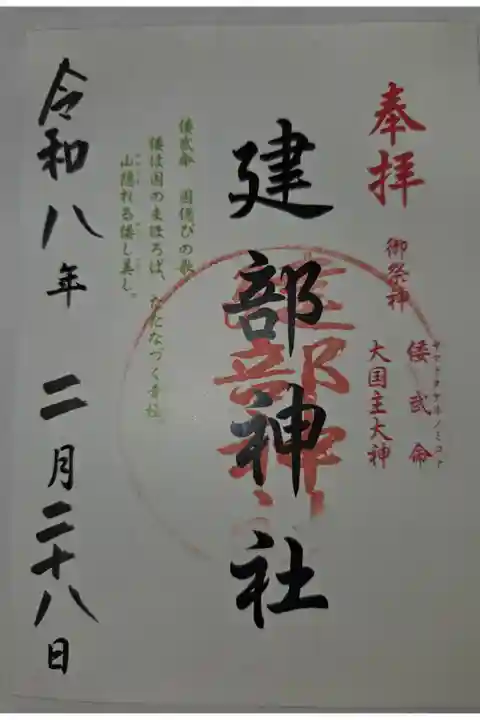 奉拝
御祭神
ヤマトタケルノミコト
倭武命
大国主大神
建部神社
建部神社
倭武命 国偲びの歌
倭は国の まほろば、たたなづく青垣、
山隠れる倭し美し。
令和八年 二月二十八日